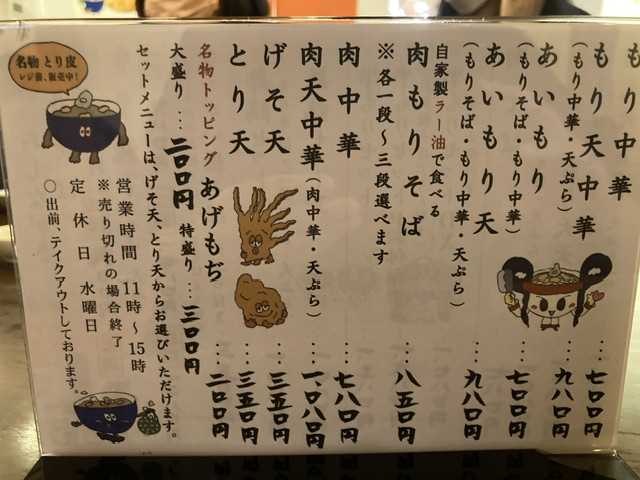 もり中華 … 七〇〇円
もり天中華 … 九八〇円
(もり中華・天ぷら)
あいもり … 七〇〇円
(もりそば・もり中華)
あいもり天 … 九八〇円
(もりそば・もり中華・天ぷら)
自家製ラー油で食べる
肉もりそば … 八五〇円
※各一段〜三段選べます
肉中華 … 七八〇円
肉天中華(肉中華・天ぷら) … 一、〇八〇円
げそ天 … 三五〇円
とり天 … 三五〇円
名物トッピング あげもぢ … 二〇〇円
大盛り … 二〇〇円 特盛り … 三〇〇円
セットメニューは、げそ天、とり天からお選びいただけます。
営業時間 11時〜15時
※売り切れの場合終了
定休日 水曜日
○出前、テイクアウトしております。
名物 とり皮
レジ前、販売中!